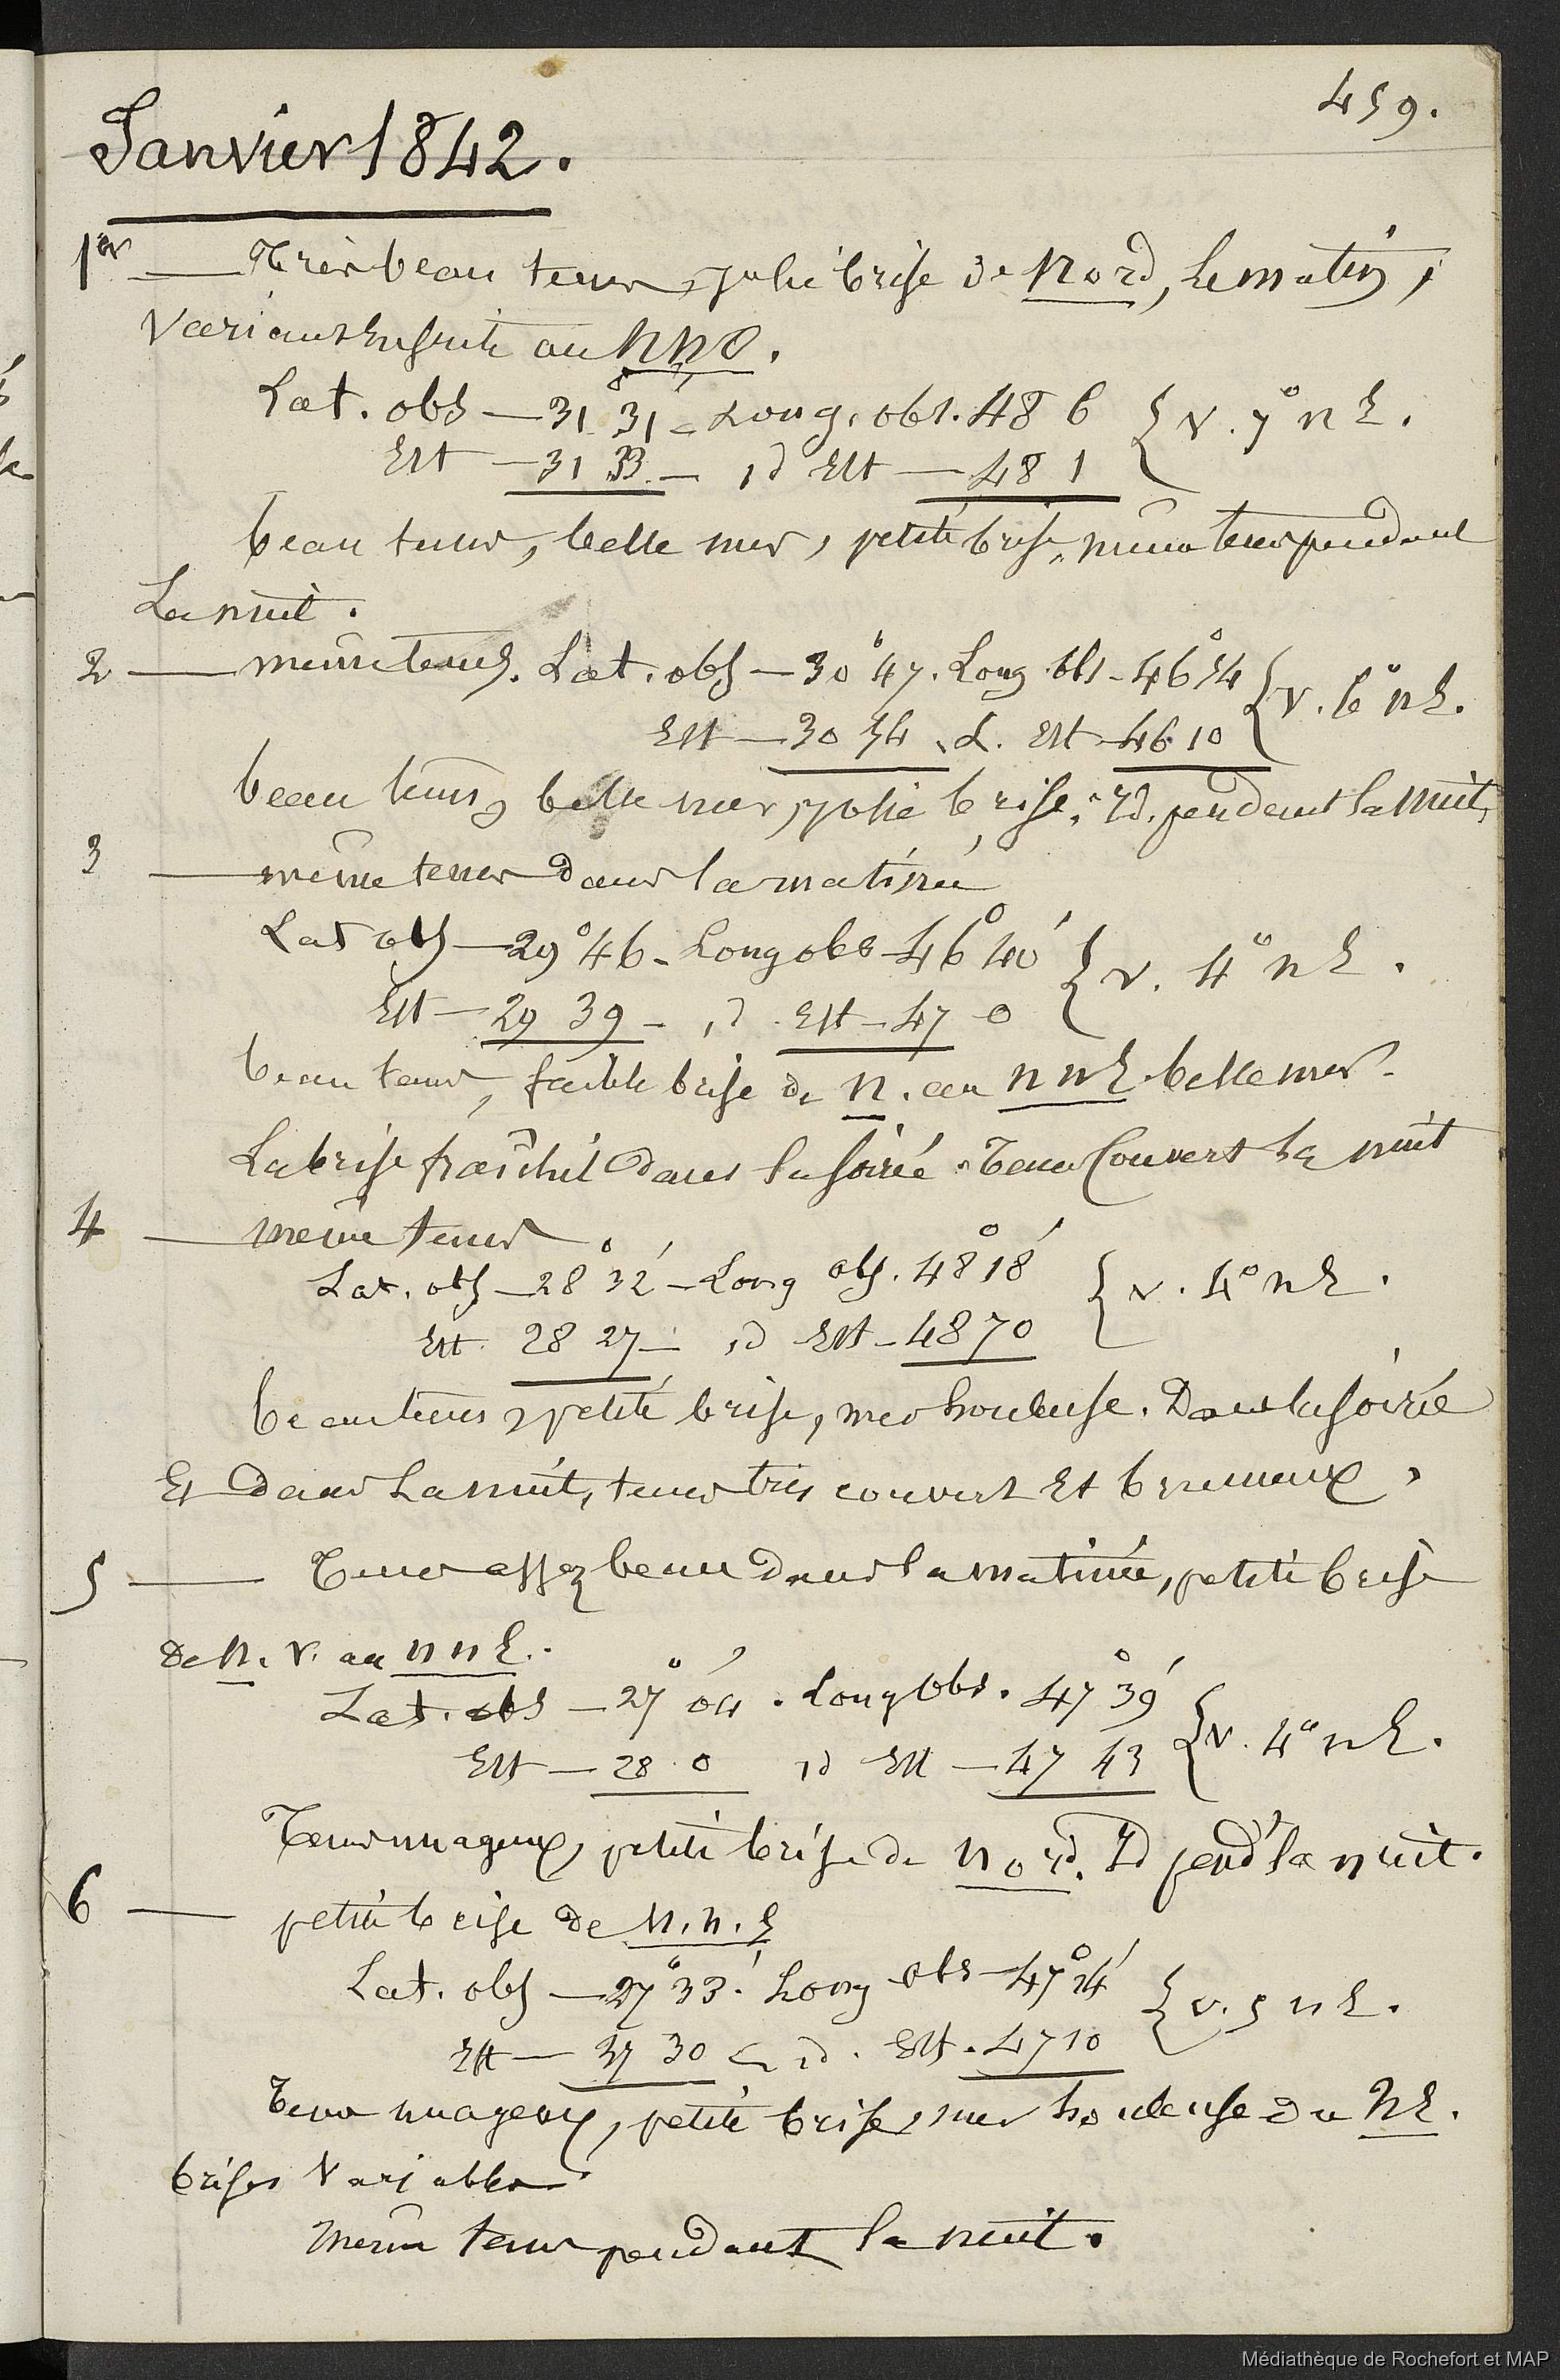 459.
Janvier 1842.
1er — Très beau tems, jolie brise de Nord, le matin,
variant ensuite au NNO.
Lat. obs — 31° 31' — Long. obs. 48 6 { V. 7° NE.
Est — 31 33 — id Est — 48 1
beau tems, belle mer, petite brise, même tems pendant
La nuit.
2 — même tems. Lat. obs — 30° 47. Long obs - 46° 54 { V. 6° NE.
Est — 30 54. d. Est 46 10
beau tems, belle mer, jolie brise. id. pendant la nuit,
3 — même tems dans la matinée
Lat obs — 29° 46 - Long obs - 46° 40' { V. 4° NE.
Est — 29 39 - id. Est - 47 0
beau tems, faible brise de N. au NNE belle mer.
La brise fraîchit dans la soirée. Tems couvert la nuit
4 — même tems.
Lat. obs — 28° 32' - Long obs. 48° 18' { V. 4° NE.
Est. 28 27 — id Est - 48 70
beau tems, petite brise, mer houleuse. Dans la soirée
Et dans La nuit, tems très couvert Et brumeux.
5 — Tems assez beau dans la matinée, petite brise
de N. V. au NNE.
Lat. obs — 27° 04'. Long Obs. 47° 39' { V. 4° NE.
Est — 28 0 id Est — 47 43
Tems nuageux, petite brise de Nord. Id pend' la nuit.
6 — petite brise de N.N.E
Lat. obs — 27° 33'. Long obs — 47° 24' { V. 5 NE.
Est — 37 30 — id. Est. 47 10
Tems nuageux, petite brise, mer houleuse du NE.
brises Variables.
Même tems pendant la nuit.
Médiathèque de Rochefort et MAP